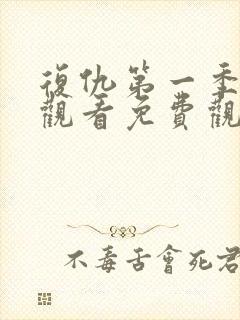 復仇第一季
觀看免費觀
不毒舌會死君